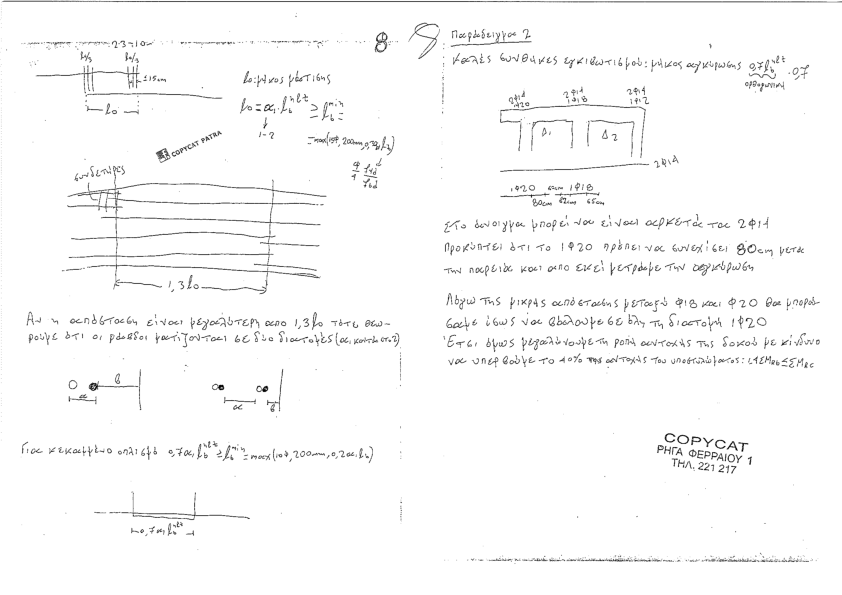 23-10-
8
l₀/3 l₀/3
≤15cm
l₀
l₀: μήκος μάτισης
l₀ = α₁ l_b^net ≥ l_b^min
1-2
= max(15φ, 200mm, 0,3α₁ l_b)
COPYCAT PATRA
συνδετήρες
1,3 l₀
Αν η απόσταση είναι μεγαλύτερη από 1,3 l₀ τότε θεω-
ρούμε ότι οι ράβδοι ματίζονται σε δύο διατομές
β
α
α β
Για κεκαμμένο οπλισμό 0,7α₁ l_b^net ≥ l_b^min = max(10φ, 200mm, 0,2α₁ l_b)
0,7α₁ l_b^net
8
Παράδειγμα 2
Καλές συνθήκες εγκιβωτισμού: μήκος αγκύρωσης 0,7 l_b^net · 0,7
2φ14 2φ14 2φ14
1φ20 1φ18 1φ12
Δ₁ Δ₂
2φ14
1φ20 1φ18
80cm 62cm 65cm
Στο άνοιγμα μπορεί να είναι αρκετά τα 2φ14
Προκύπτει ότι το 1φ20 πρέπει να συνεχίσει 80cm μετά
την παρειά και από εκεί μετράμε την αγκύρωση
Λόγω της μικρής απόστασης μεταξύ φ18 και φ20 θα μπορού-
σαμε ίσως να βάλουμε σε όλη τη διατομή 1φ20
Έτσι όμως μεγαλώνουμε τη ροπή αντοχής της δοκού με κίνδυνο
να υπερβούμε το 40% της αντοχής του υποστυλώματος:
COPYCAT
ΡΗΓΑ ΦΕΡΡΑΙΟΥ 1
ΤΗΛ. 221 217